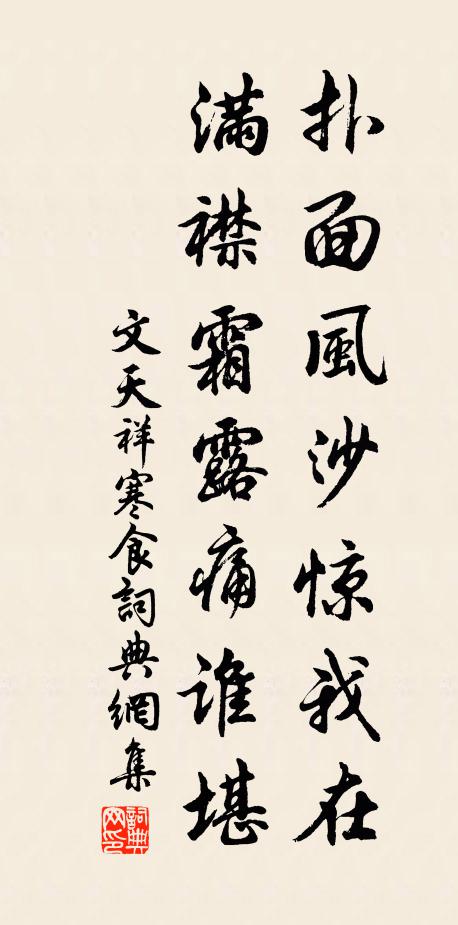 扑面風沙惊我在
滿襟霜露痛谁堪
文天祥寒食詞典網集
詞典网印